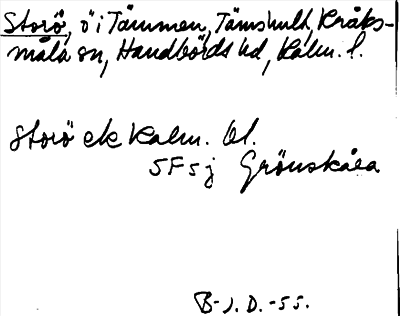 Storö, ö i Tämmen, Tämshult, Kråks-
måla sn, Handbörds hd, Kalm. l.
Storö ek Kalm. bl.
5F5j Grönskåra
B-J. D. -55.